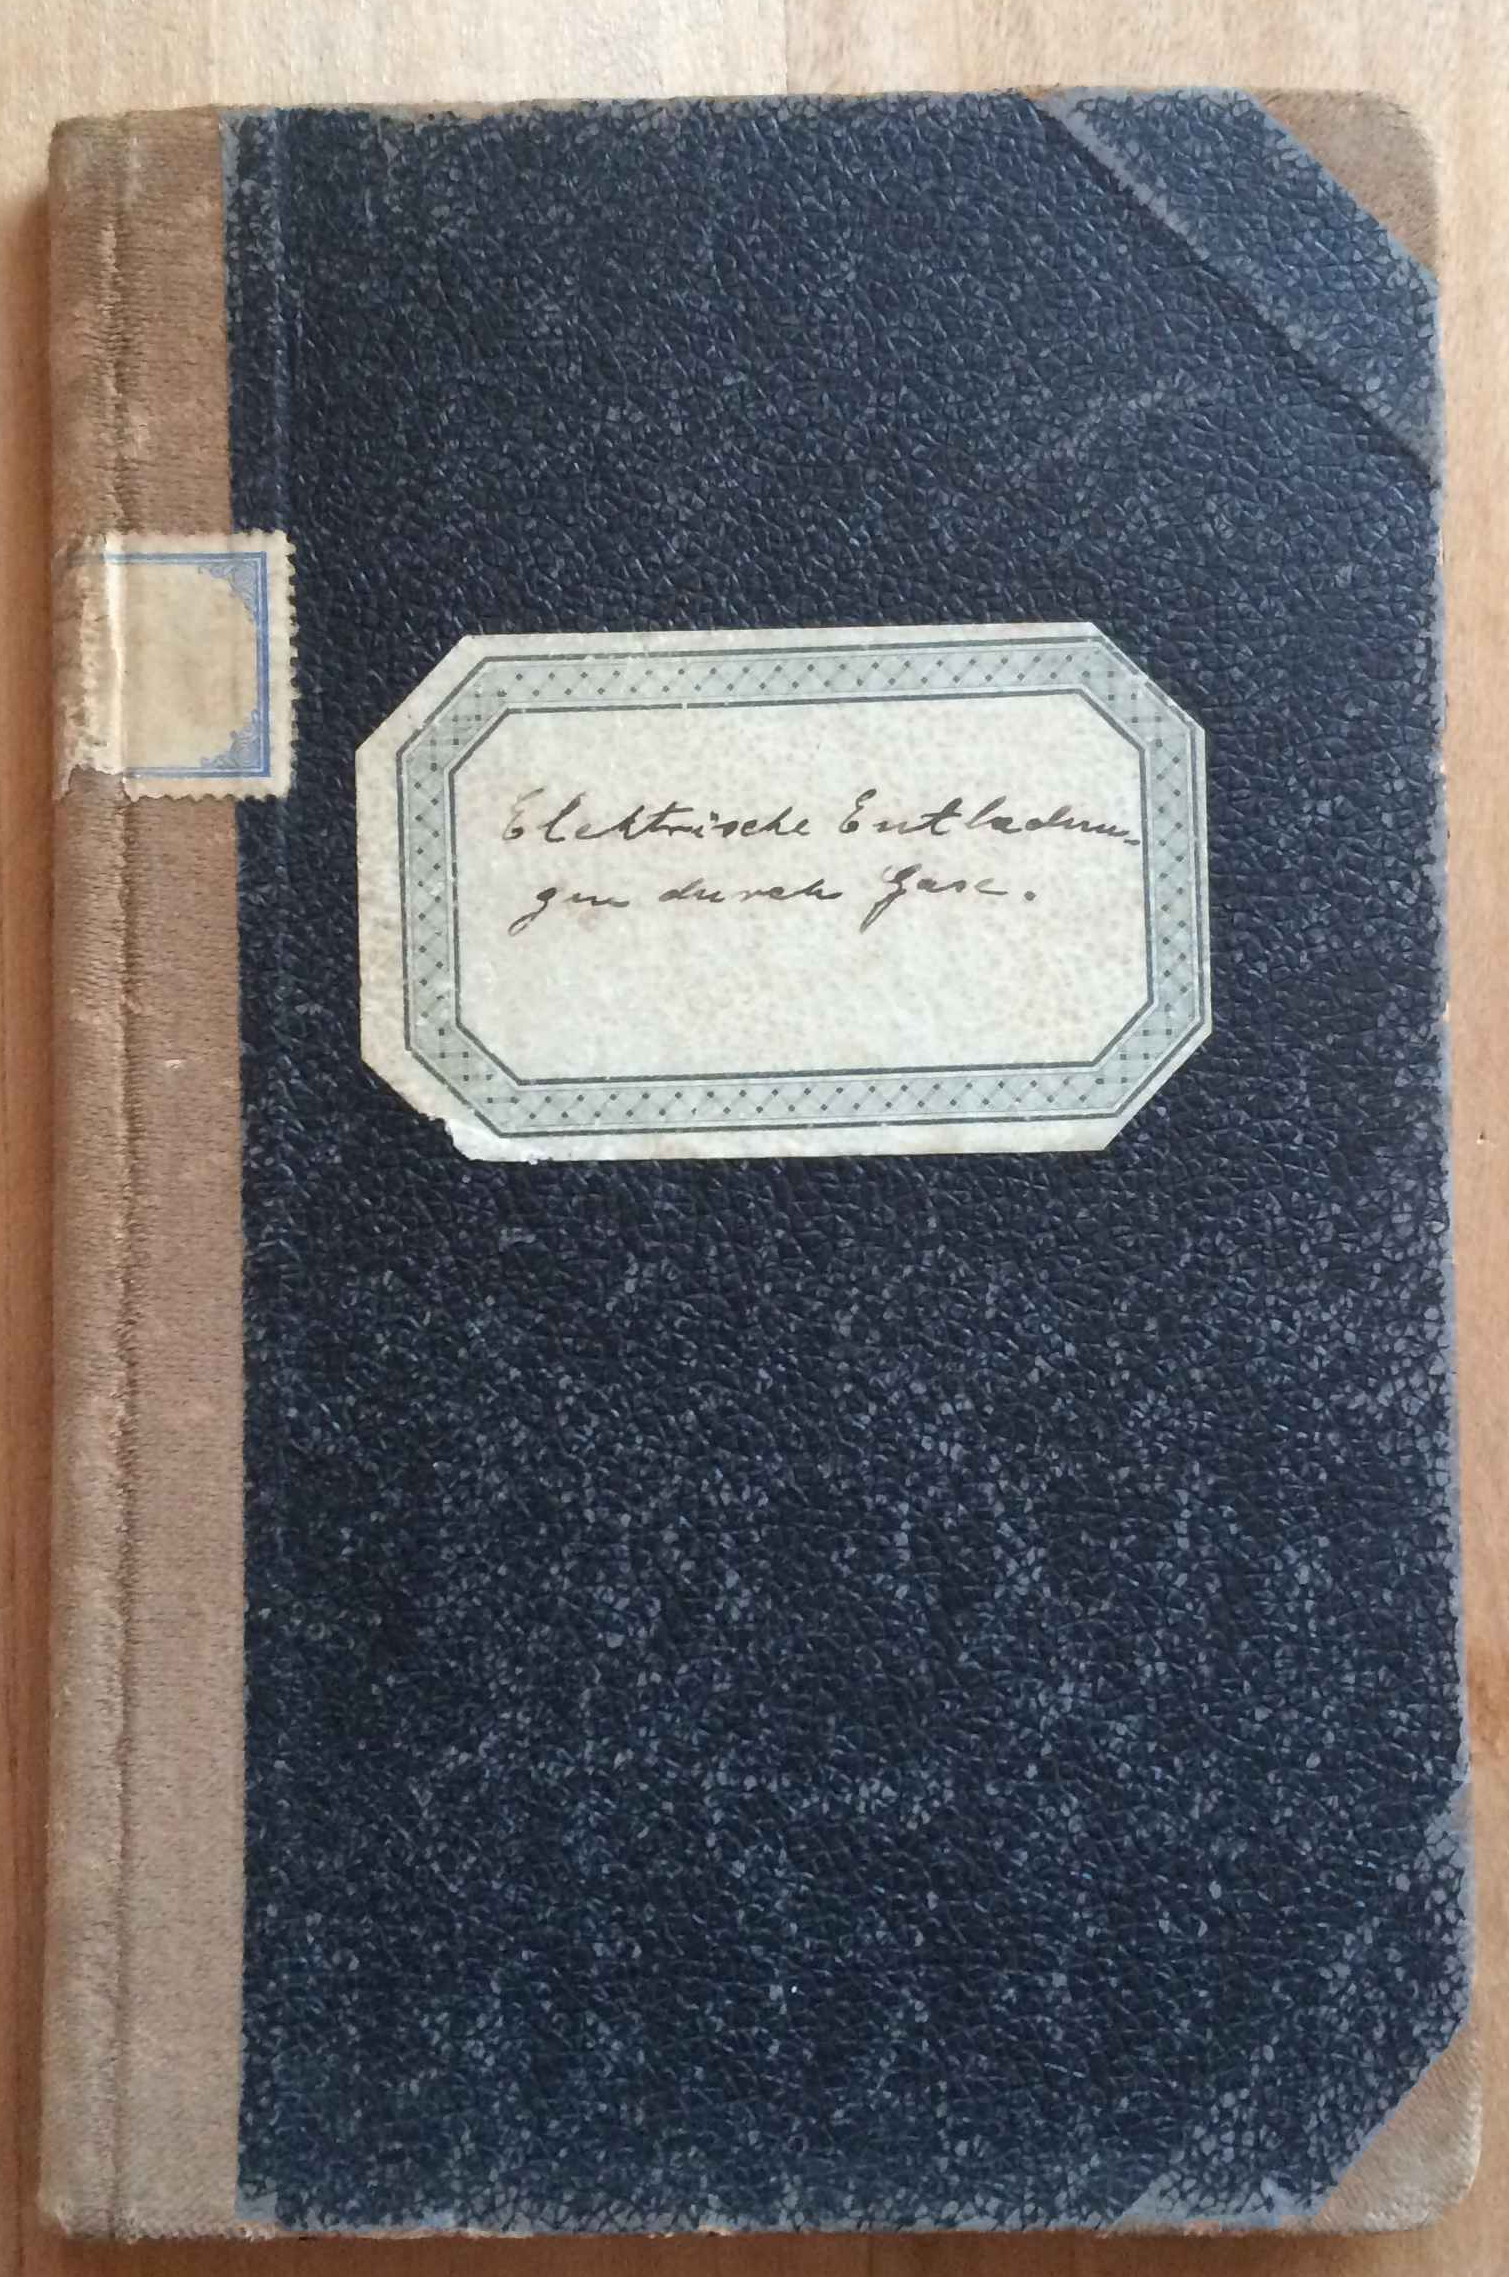 Elektrische Entladun-
gen durch Gase.